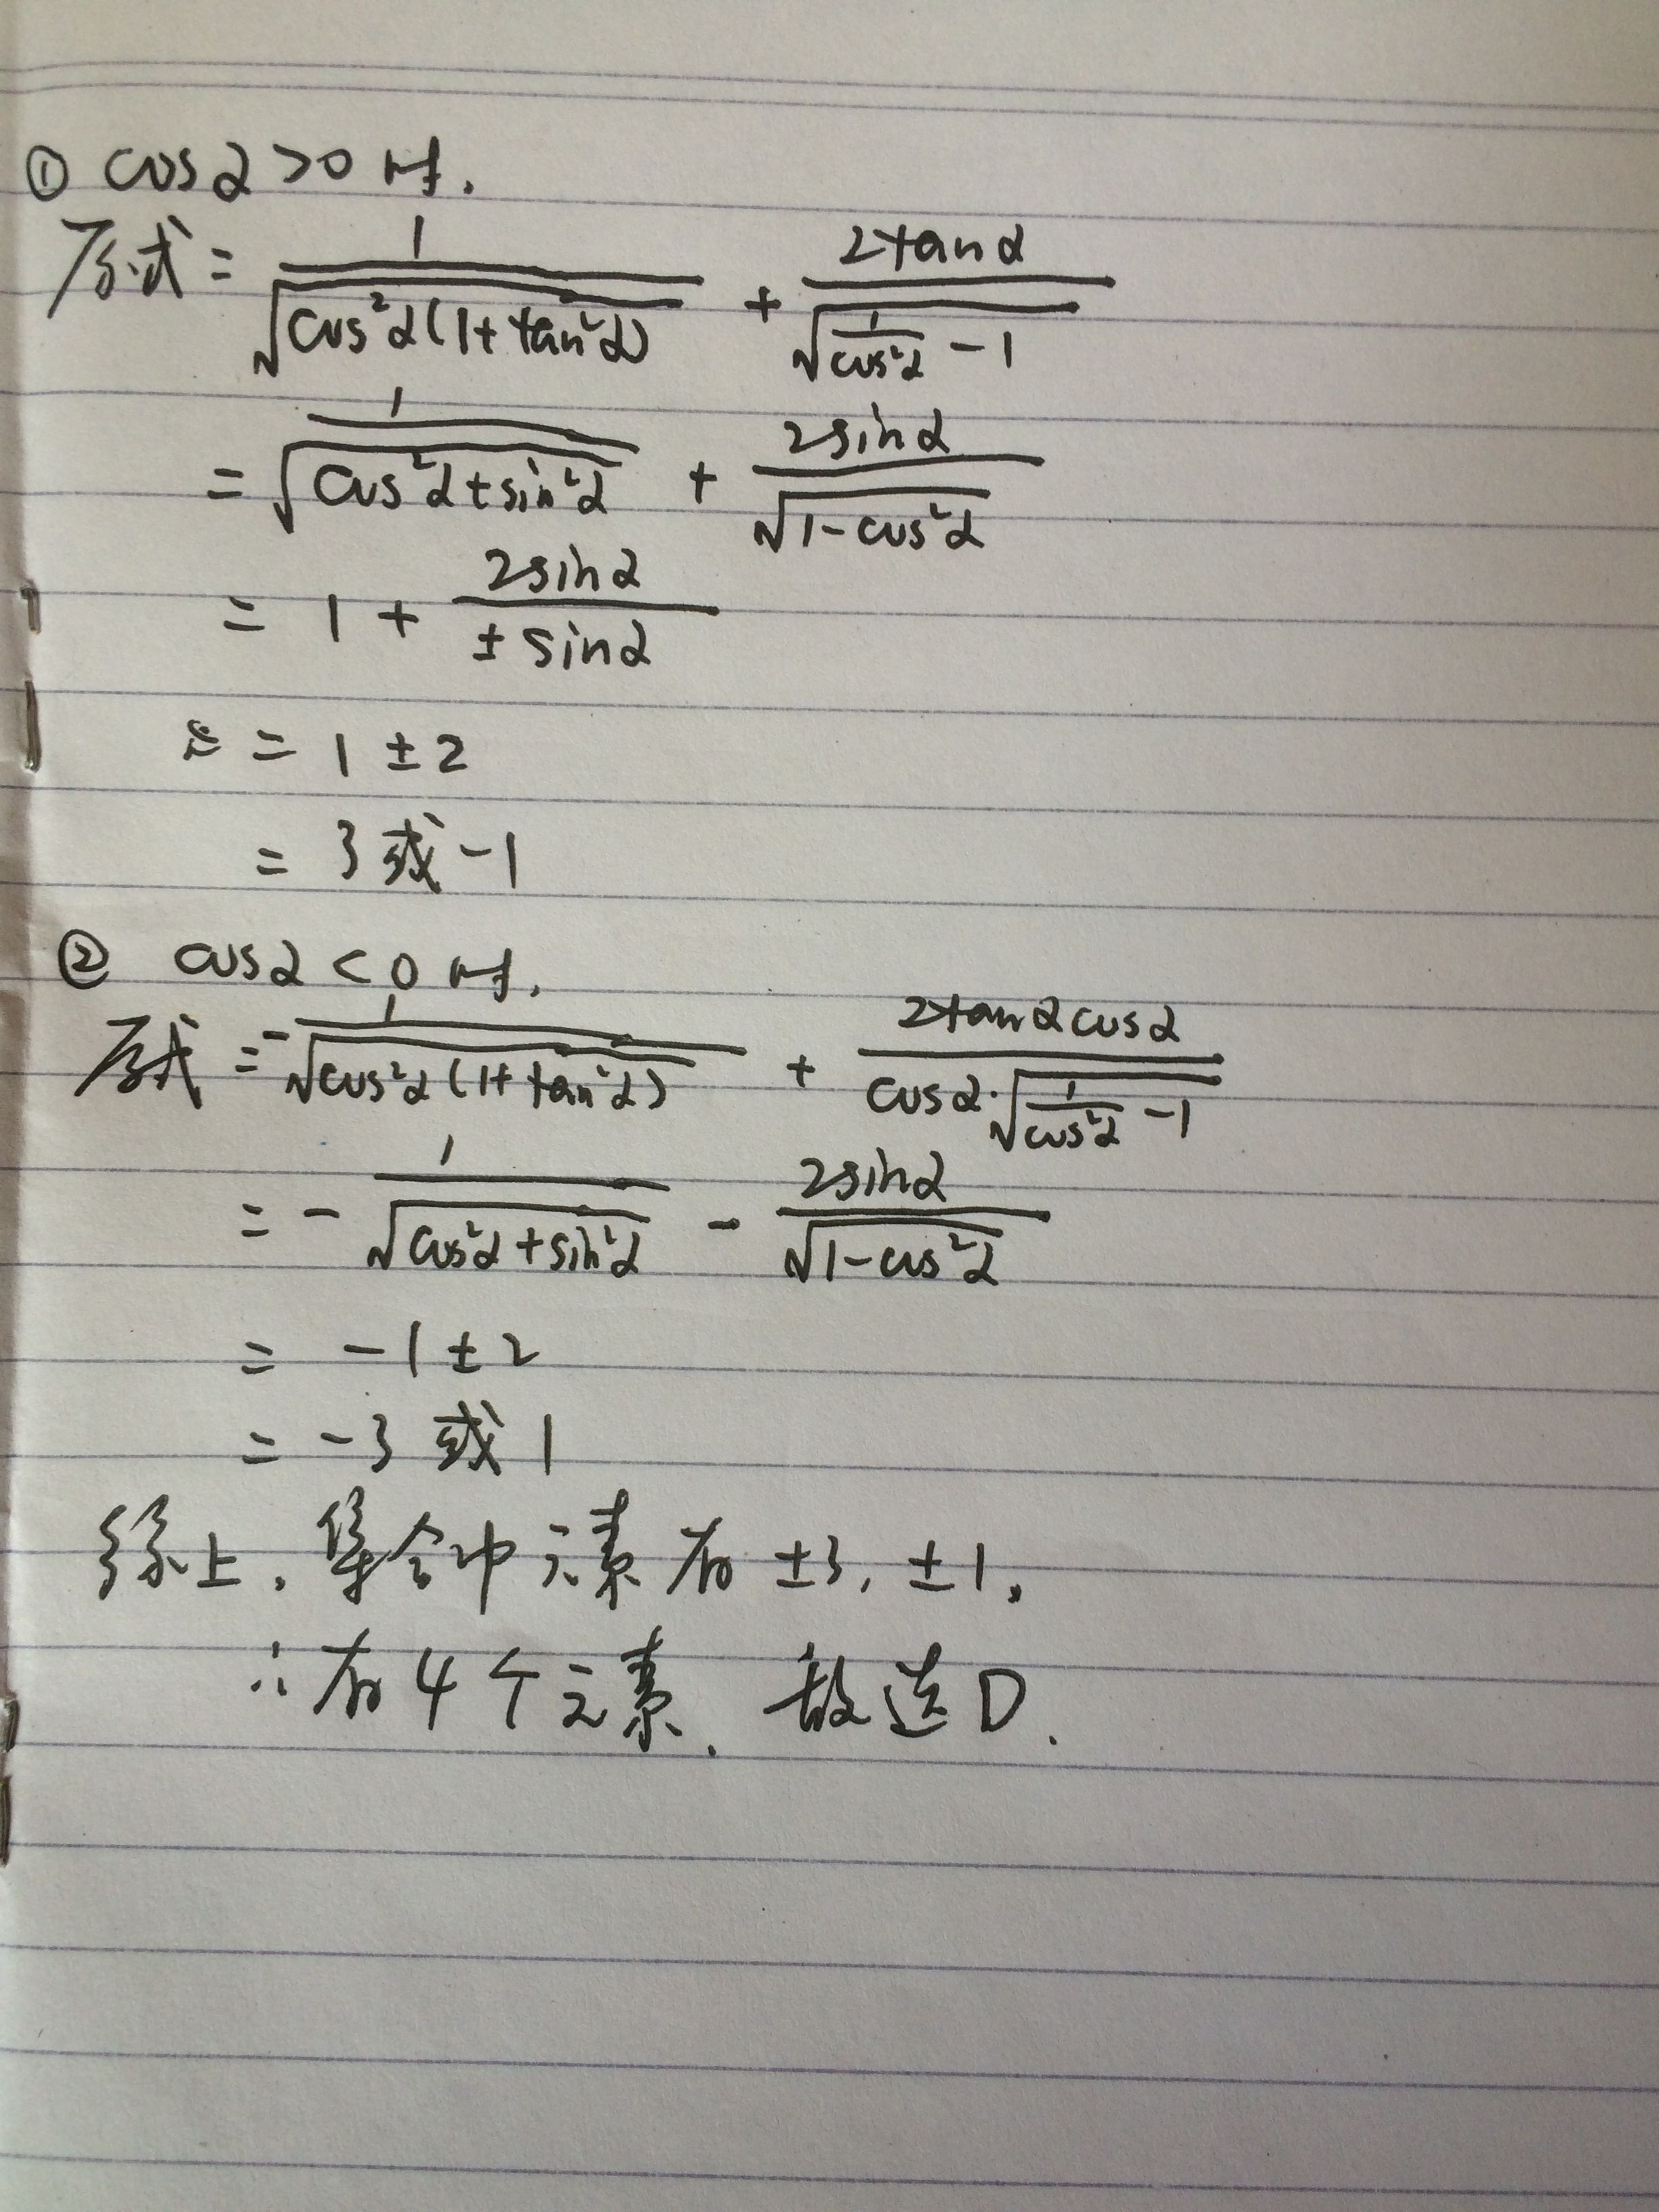 ① cosα>0时.
原式 = 1/√(cos²α(1+tan²α)) + 2tanα/√(1/cos²α - 1)
= 1/√(cos²α+sin²α) + 2sinα/√(1-cos²α)
= 1 + 2sinα/±sinα
= 1 ± 2
= 3 或 -1
② cosα<0时.
原式 = -1/√(cos²α(1+tan²α)) + 2tanαcosα/(cosα·√(1/cos²α - 1))
= - 1/√(cos²α+sin²α) - 2sinα/√(1-cos²α)
= -1 ± 2
= -3 或 1
综上, 集合中元素有 ±3, ±1,
∴有4个元素. 故选D.